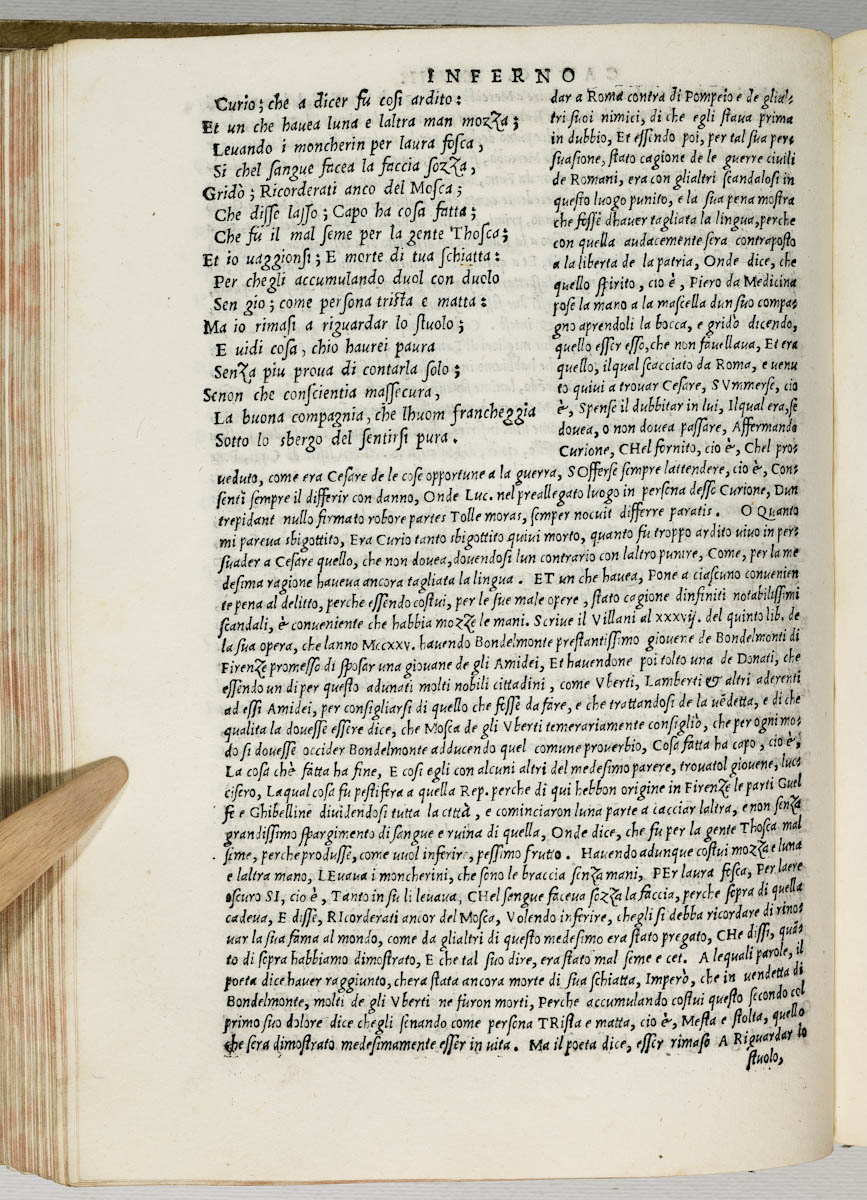 INFERNO
Curio; che a dicer fu cosi ardito:
Et un che hauea luna e laltra man mozza;
Leuando i moncherin per laura fosca,
Si chel sangue facea la faccia sozza,
Gridò; Ricorderati anco del Mosca;
Che disse lasso; Capo ha cosa fatta;
Che fu il mal seme per la gente Thosca;
Et io uaggionsi; E morte di tua schiatta:
Per chegli accumulando duol con duolo
Sen gio; come persona trista e matta:
Ma io rimasi a riguardar lo stuolo;
E uidi cosa, chio haurei paura
Senza piu proua di contarla solo;
Senon che conscientia massecura,
La buona compagnia, che lhuom francheggia
Sotto lo sbergo del sentirsi pura.
dar a Roma contra di Pompeio e de glial-
tri suoi nimici, di che egli staua prima
in dubbio, Et essendo poi, per tal sua per-
suasione, stato cagione de le guerre ciuili
de Romani, era con glialtri scandalosi in
questo luogo punito, e la sua pena mostra
che fosse dhauer tagliata la lingua, perche
con quella audacemente sera contraposto
a la liberta de la patria, Onde dice, che
quello spirito, cio è, Piero da Medicina
pose la mano a la mascella dun suo compa-
gno aprendoli la bocca, e gridò dicendo,
quello esser esso, che non fauellaua, Et era
quello, ilqual scacciato da Roma, e uenu
to quiui a trouar Cesare, SVmmerse, cio
è, Spense il dubbitar in lui, Ilqual era, se
douea, o non douea passare, Affermando
Curione, CHel fornito, cio è, Chel pro-
ueduto, come era Cesare de le cose opportune a la guerra, SOfferse sempre lattendere, cio è, Con-
senti sempre il differir con danno, Onde Luc. nel preallegato luogo in persona desso Curione, Dun
trepidant nullo firmato robore partes Tolle moras, semper nocuit differre paratis. O Quanto
mi pareua sbigottito, Era Curio tanto sbigottito quiui morto, quanto fu troppo ardito uiuo in per-
suader a Cesare quello, che non douea, douendosi lun contrario con laltro punire, Come, per la me
desima ragione haueua ancora tagliata la lingua. ET un che hauea, Pone a ciascuno conuenien
te pena al delitto, perche essendo costui, per le sue male opere, stato cagione dinfiniti notabilissimi
scandali, è conueniente che habbia mozze le mani. Scriue il Villani al xxxvij. del quinto lib. de
la sua opera, che lanno Mccxxv. hauendo Bondelmonte prestantissimo giouene de Bondelmonti di
Firenze promesso di sposar una giouane de gli Amidei, Et hauendone poi tolto una de Donati, che
essendo un di per questo adunati molti nobili cittadini, come Vberti, Lamberti & altri aderenti
ad essi Amidei, per consigliarsi di quello che fosse da fare, e che trattandosi de la uēdetta, e di che
qualita la douesse essere dice, che Mosca de gli Vberti temerariamente consigliò, che per ogni mo-
do si douesse occider Bondelmonte adducendo quel comune prouerbio, Cosa fatta ha capo, cio è,
La cosa chè fatta ha fine, E cosi egli con alcuni altri del medesimo parere, trouatol giouene, luc-
cisero, Laqual cosa fu pestifera a quella Rep. perche di qui hebbon origine in Firenze le parti Guel
fe e Ghibelline diuidendosi tutta la cttà, e cominciaron luna parte a cacciar laltra, e non senza
grandissimo spargimento di sangue e ruina di quella, Onde dice, che fu per la gente Thosca mal
sime, perche produsse, come uuol inferire, pessimo frutto. Hauendo adunque costui mozza e luna
e laltra mano, LEuaua i moncherini, che sono le braccia senza mani, PEr laura fosca, Per laere
oscuro SI, cio è, Tanto in su li leuaua, CHel sangue faceua sozza la faccia, perche sopra di quella
cadeua, E disse, RIcorderati ancor del Mosca, Volendo inferire, chegli si debba ricordare di rino-
uar la sua fama al mondo, come da glialtri di questo medesimo era stato pregato, CHe dissi, quā-
to di sopra habbiamo dimostrato, E che tal suo dire, era stato mal seme e cet. A lequali parole, il
poeta dice hauer raggiunto, chera stata ancora morte di sua schiatta, Imperò, che in uendetta di
Bondelmonte, molti de gli Vberti ne furon morti, Perche accumulando costui questo secondo col
primo suo dolore dice chegli senando come persona TRista e matta, cio è, Mesta e stolta, quello
che sera dimostrato medesimamente esser in uita. Ma il poeta dice, esser rimaso A Riguardar lo
stuolo,